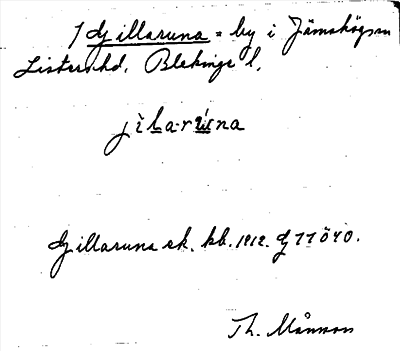 1 Gillaruna = by i Jämshögs sn
Listers hd. Blekinge l.
jìlarúna
Gillaruna sk. kb. 1912.
Th. Månsson